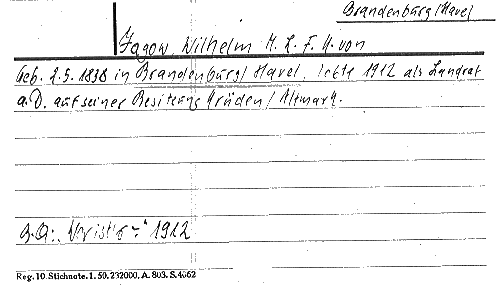 Brandenburg/Havel
Jagow, Wilhelm H. L. F. K. von
geb. 2.5.1838 in Brandenburg/Havel, lebte 1912 als Landrat
a.D. auf seiner Besitzung Krüden/Altmark.
B.Qu.: 1912
Reg. 10. Stichnote. 1. 50. 232000. A. 803. S. 4662